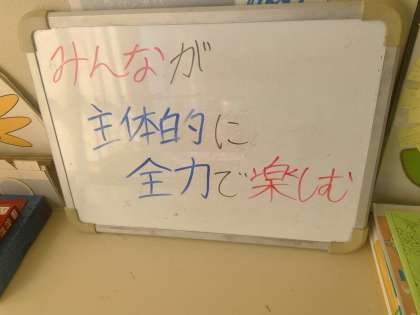 みんなが
主体的に
全力で楽しむ